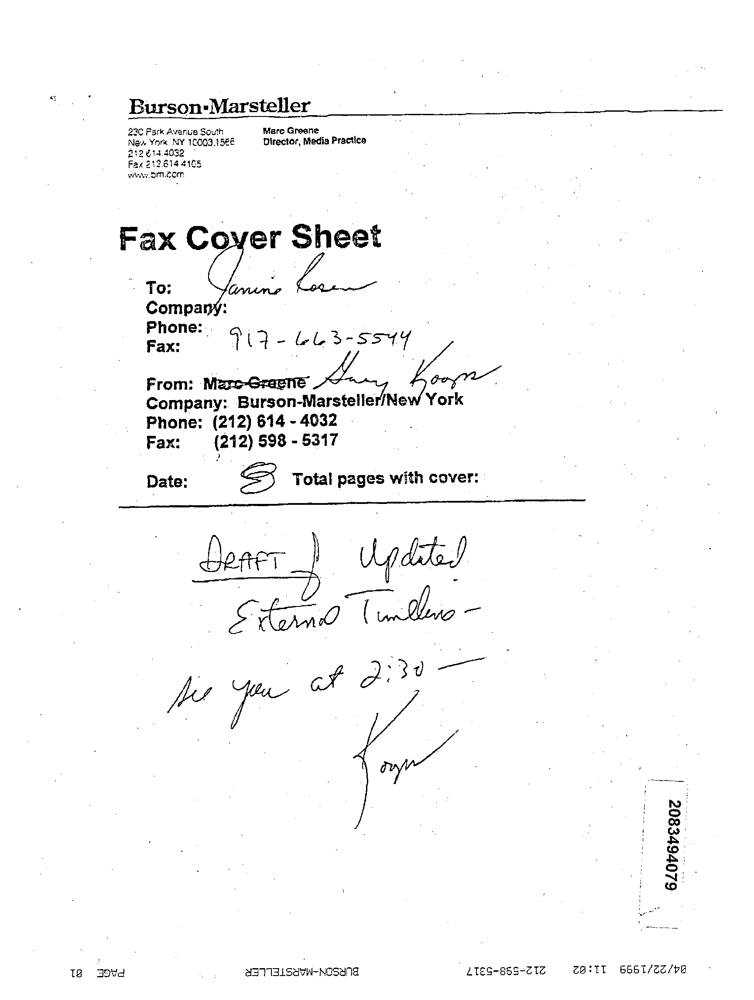 Burson•Marsteller
230 Park Avenue South
New York, NY 10003.1566
212 614.4032
Fax 212.614.4105
www.bm.com
Marc Greene
Director, Media Practice
Fax Cover Sheet
To: Janine Rosen
Company:
Phone:
Fax: 917-663-5544
From: Marc Greene Gary Koops
Company: Burson-Marsteller/New York
Phone: (212) 614 - 4032
Fax: (212) 598 - 5317
Date: 8 Total pages with cover:
DRAFT of Updated
External Timelines -
See you at 2:30 —
Koops
2083494079
04/22/1999 11:02 212-598-5317 BURSON-MARSTELLER PAGE 01